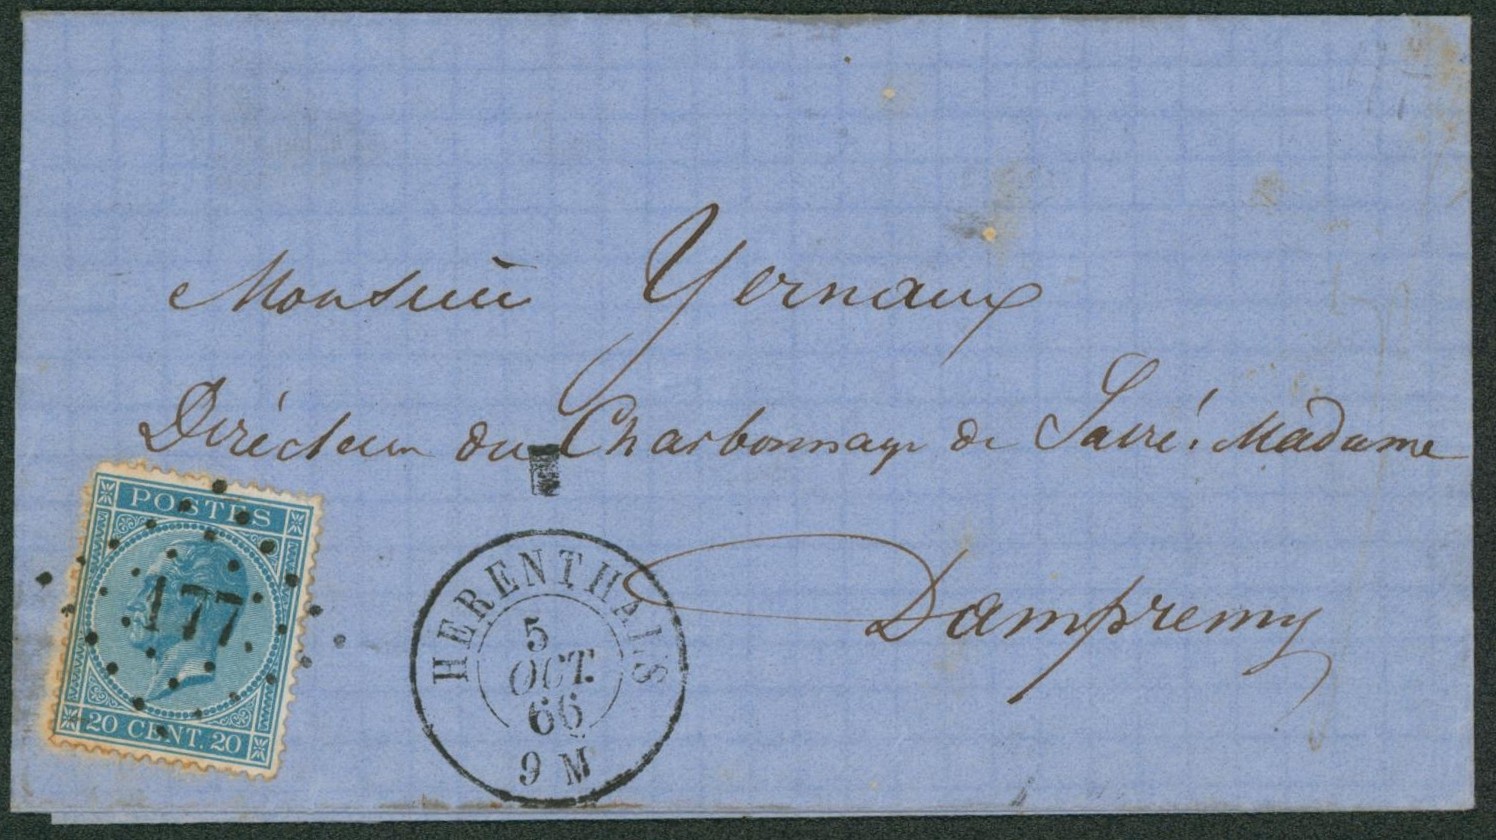 Monsieur Yernaux
Directeur du Charbonnage de Sacré-Madame
Dampremy
POSTES
177
20 CENT. 20
HERENTHALS
5
OCT.
66
9 M